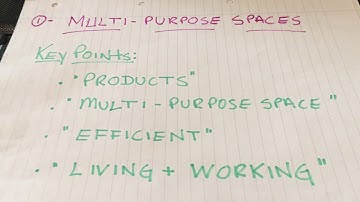 ①- MULTI-PURPOSE SPACES
KEY POINTS:
• "PRODUCTS"
• "MULTI-PURPOSE SPACE"
• "EFFICIENT"
• "LIVING + WORKING"